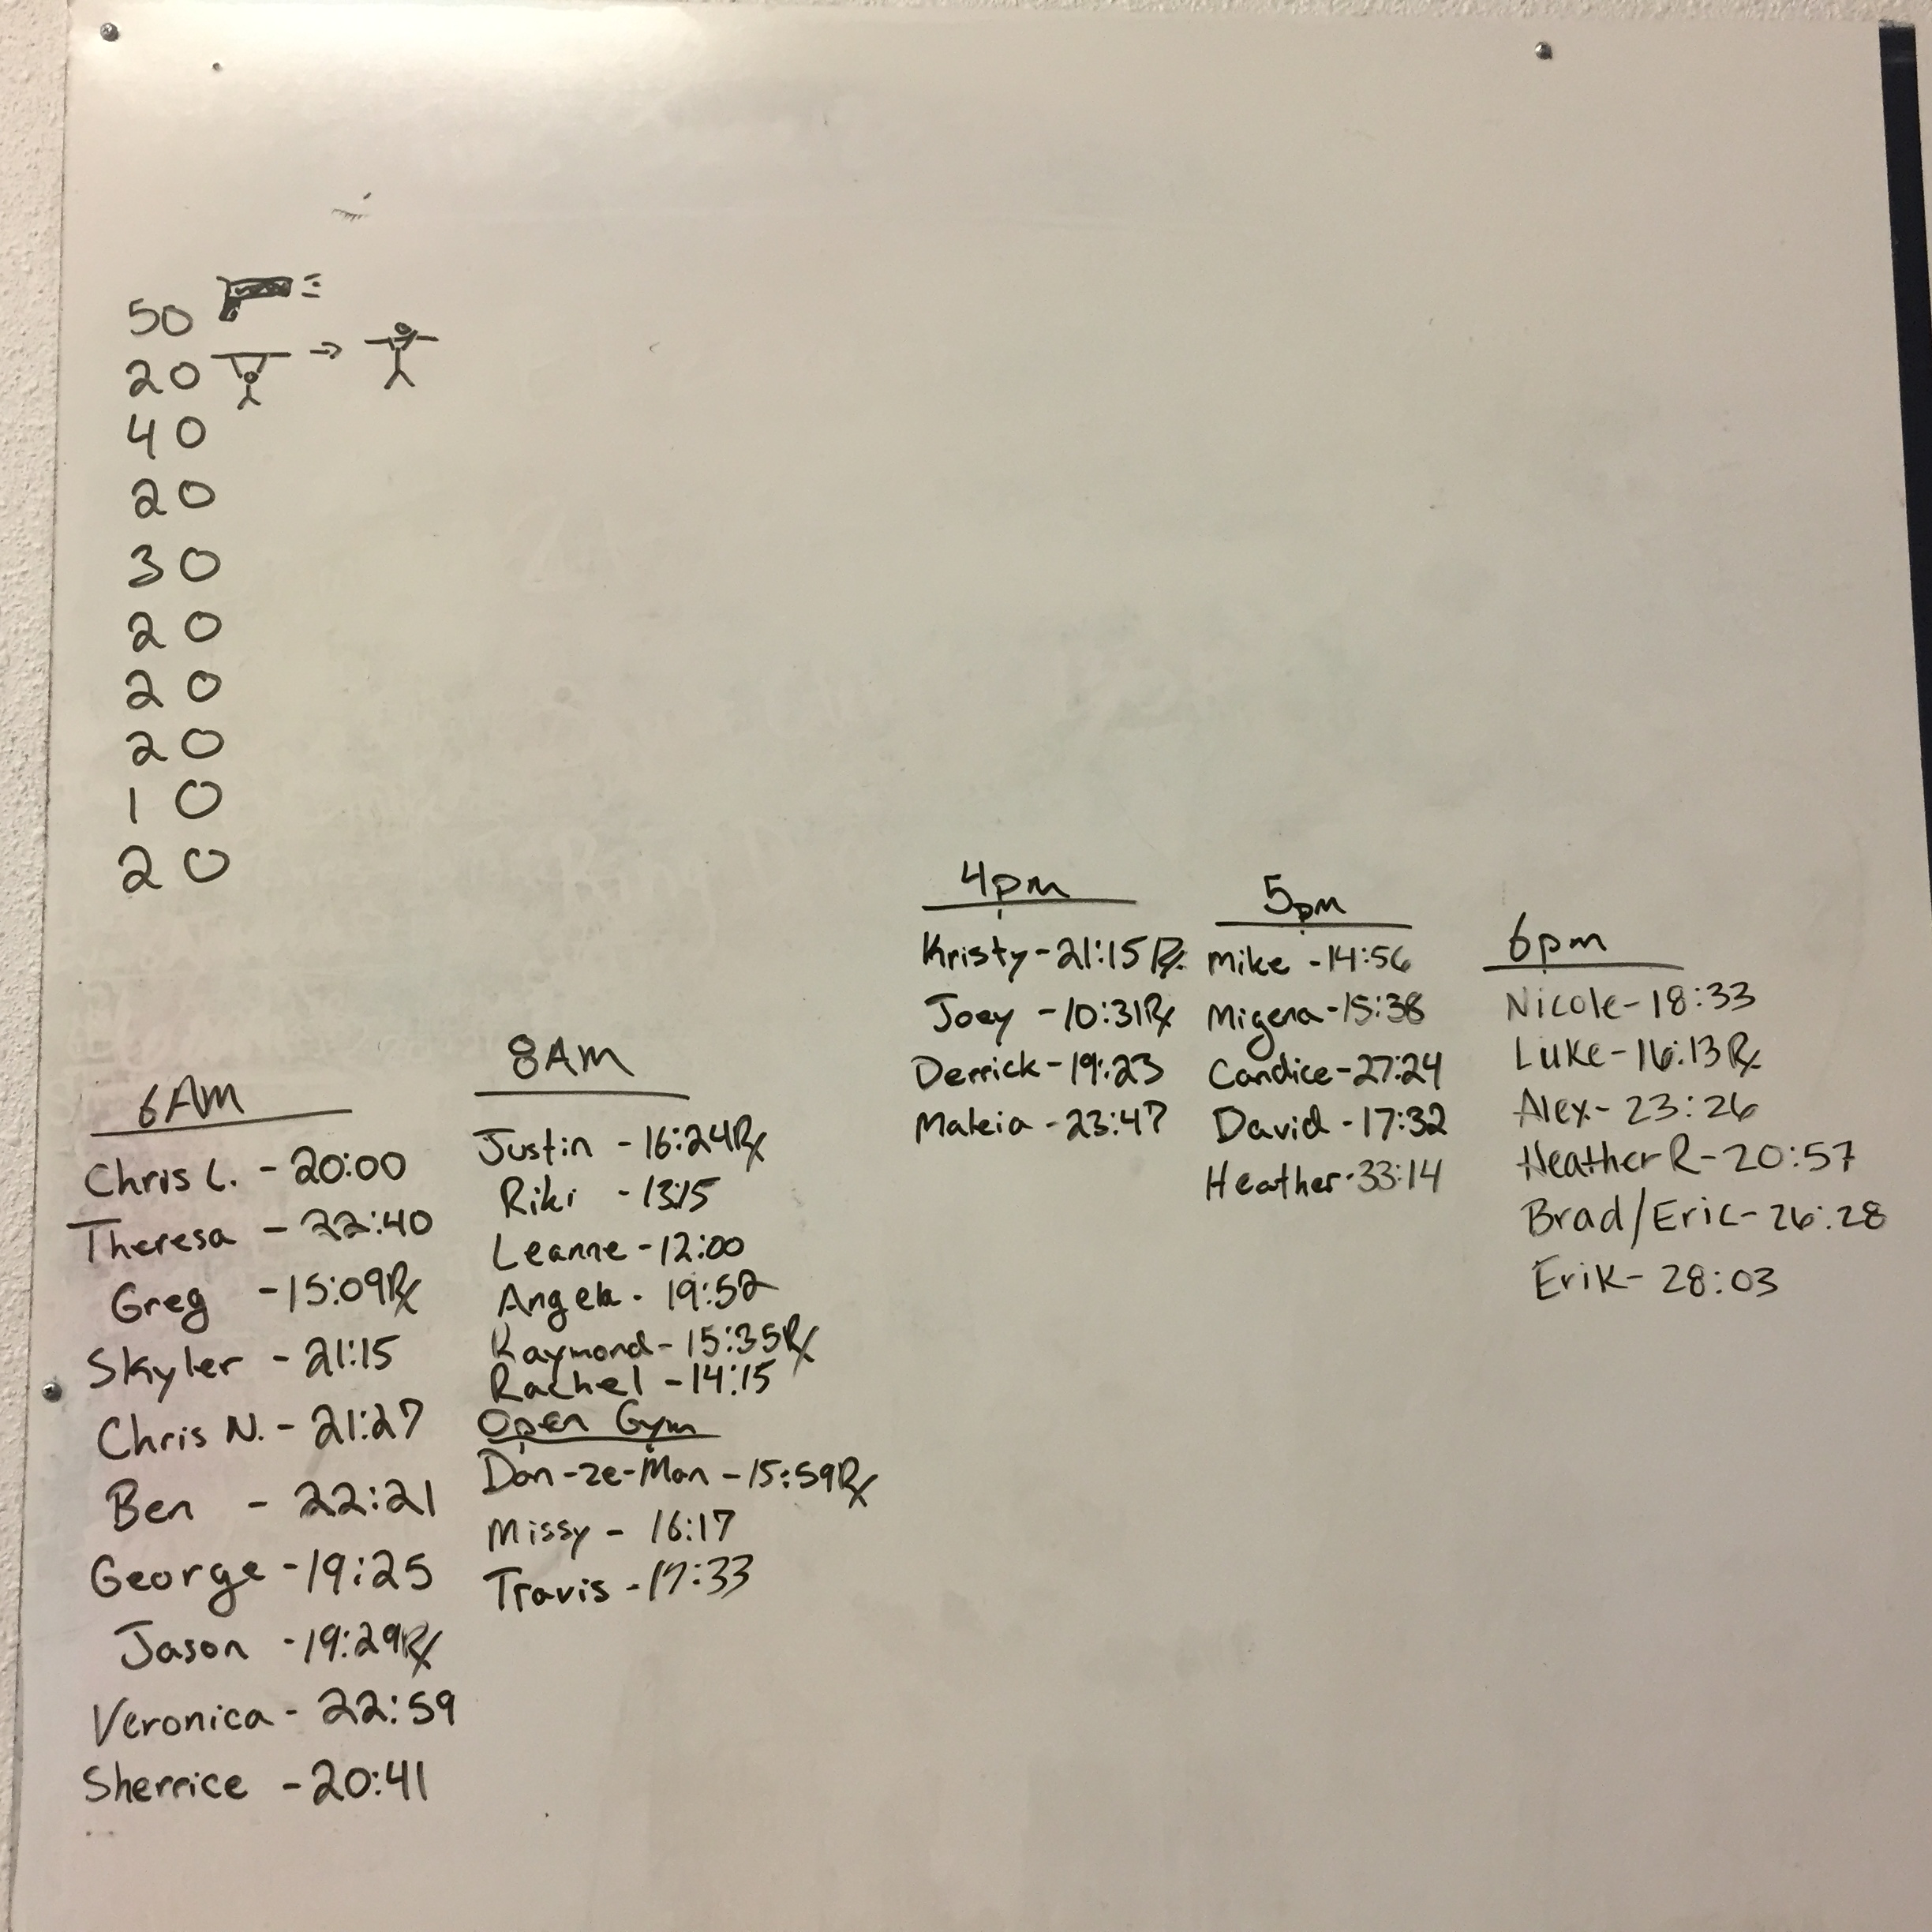 50
20
40
20
30
20
20
20
10
20
6AM
Chris L. - 20:00
Theresa - 22:40
Greg - 15:09 Rx
Skyler - 21:15
Chris N. - 21:27
Ben - 22:21
George - 19:25
Jason - 19:29 Rx
Veronica - 22:59
Sherrice - 20:41
8AM
Justin - 16:24 Rx
Riki - 13:15
Leanne - 12:00
Angela - 19:52
Raymond - 15:35 Rx
Rachel - 14:15
Open Gym
Dan-ze-Man - 15:59 Rx
Missy - 16:17
Travis - 17:33
4pm
Kristy - 21:15 Rx
Joey - 10:31 Rx
Derrick - 19:23
Maleia - 23:47
5pm
Mike - 14:56
Migena - 15:38
Candice - 27:24
David - 17:32
Heather - 33:14
6pm
Nicole - 18:33
Luke - 16:13 Rx
Alex - 23:26
Heather R - 20:57
Brad/Eric - 26:28
Erik - 28:03